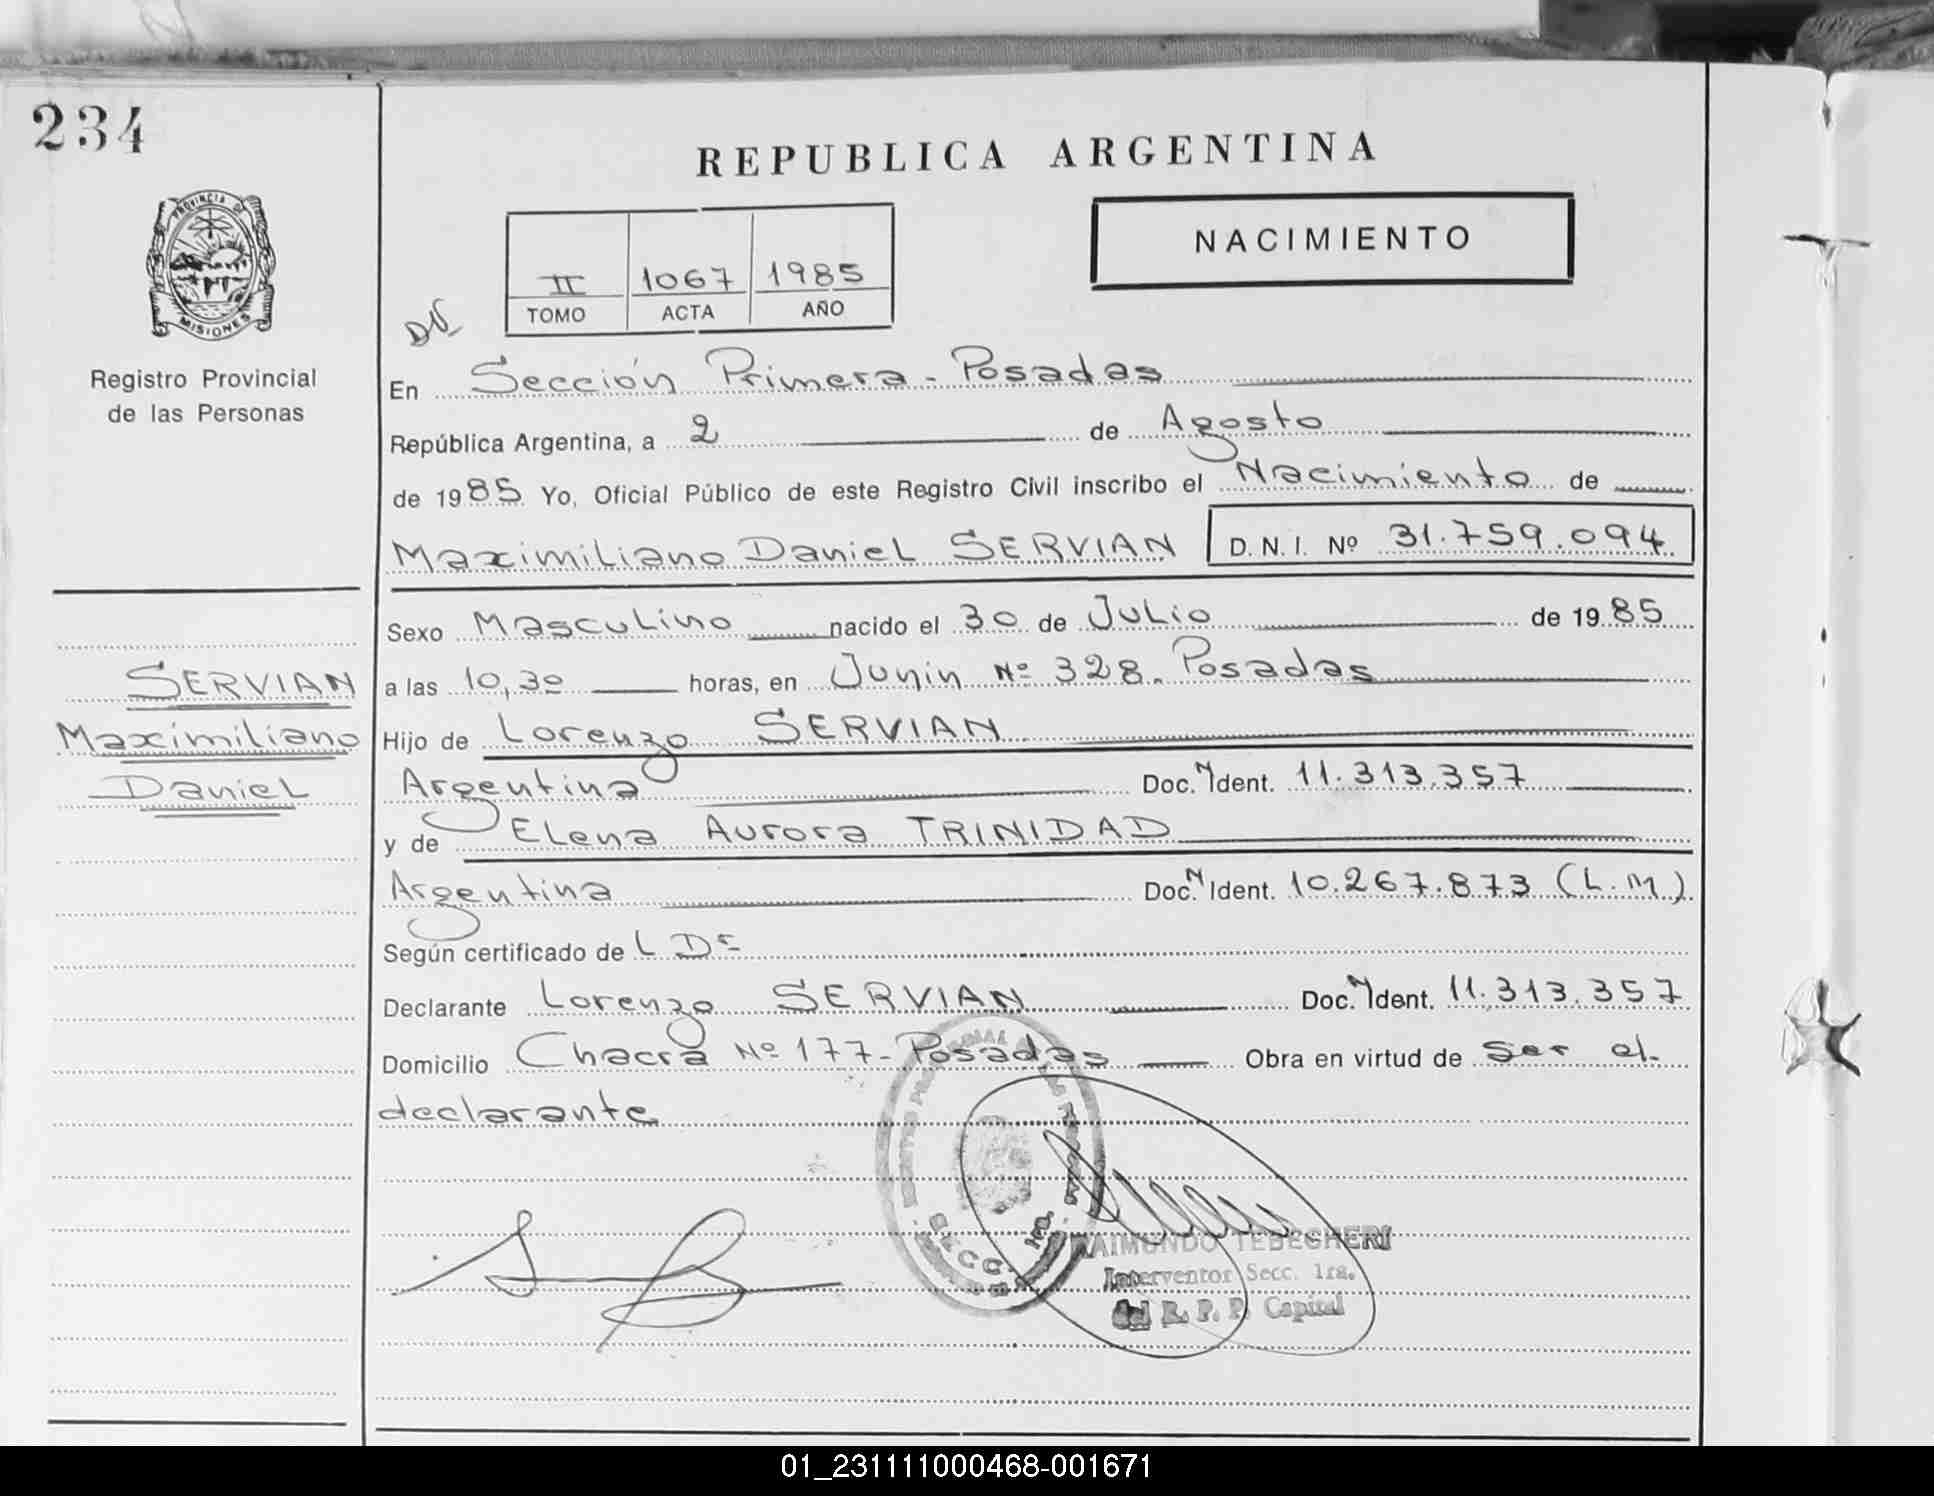 234
REPUBLICA ARGENTINA
PROVINCIA DE
MISIONES
Registro Provincial
de las Personas
NACIMIENTO
II 1067 1985
TOMO ACTA AÑO
En Sección Primera - Posadas
República Argentina, a 2 de Agosto
de 1985 Yo, Oficial Público de este Registro Civil inscribo el Nacimiento de
Maximiliano Daniel SERVIAN D. N. I. Nº 31.759.094
Sexo Masculino nacido el 30 de Julio de 1985
SERVIAN
Maximiliano
Daniel
a las 10,30 horas, en Junin Nº 328. Posadas
Hijo de Lorenzo SERVIAN
Argentina Doc. N Ident. 11.313.357
y de Elena Aurora TRINIDAD
Argentina Doc. N Ident. 10.267.873 (L.M.)
Según certificado de L
Declarante Lorenzo SERVIAN Doc. N Ident. 11.313.357
Domicilio Chacra Nº 177 - Posadas Obra en virtud de ser el
declarante
RAIMUNDO TEBECHERI
Interventor Secc. 1ra.
del R. P. P. Capital
01_231111000468-001671